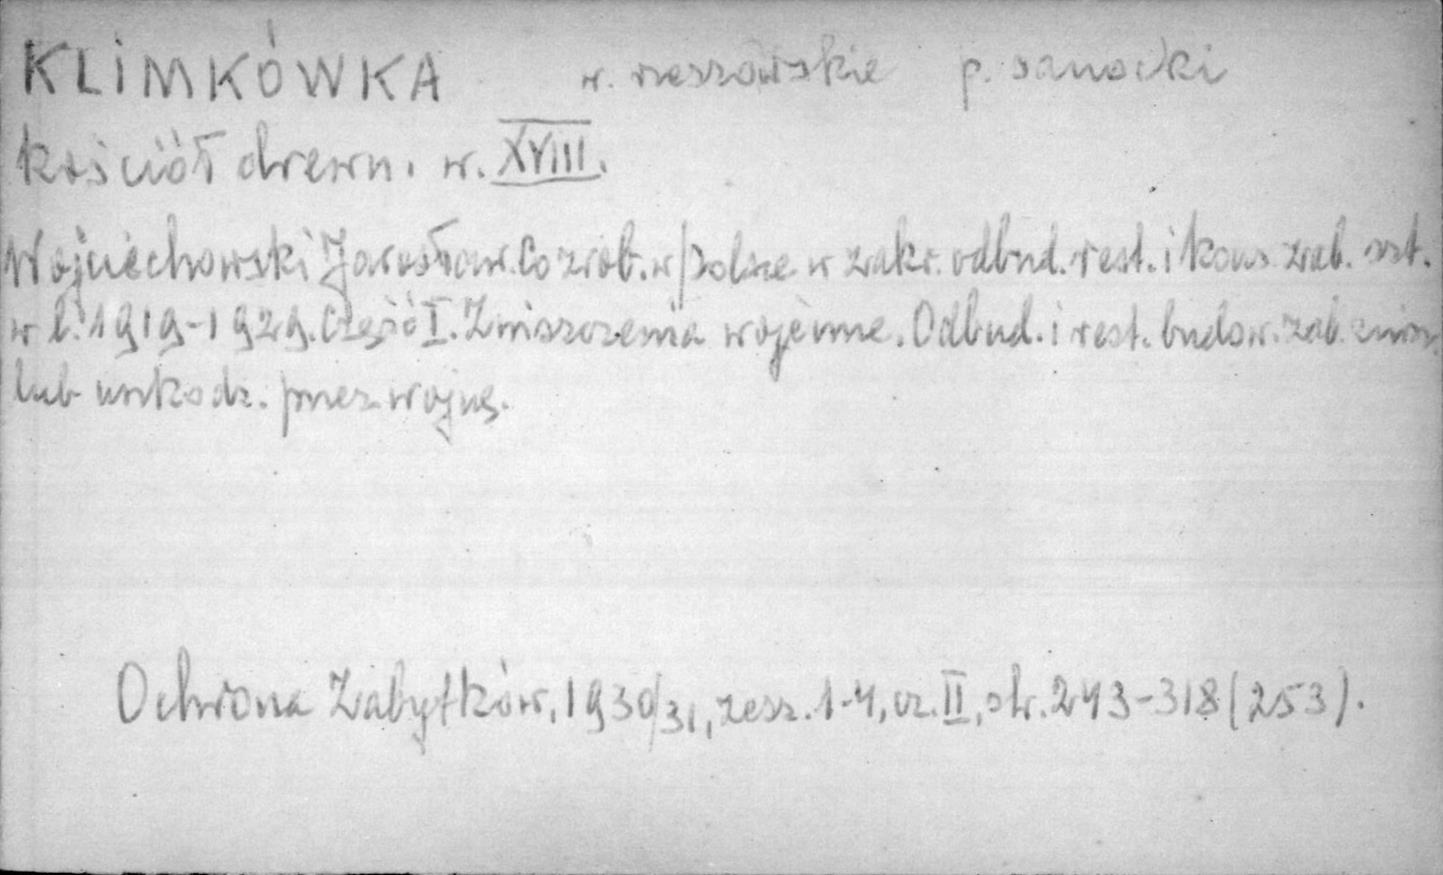 KLIMKÓWKA w. rzeszowskie p. sanocki
kościół drewn. w. XVIII.
Wojciechowski Jarosław. Co zrob. w Polsce w zakr. odbud. rest. i kons. zab. szt.
w l. 1919-1929. Część I. Zniszczenia wojenne. Odbud. i rest. budow. zab. zniszcz.
lub uszkodz. przez wojnę.
Ochrona Zabytków, 1930/31, zesz. 1-4, cz. II, str. 243-318 (253).